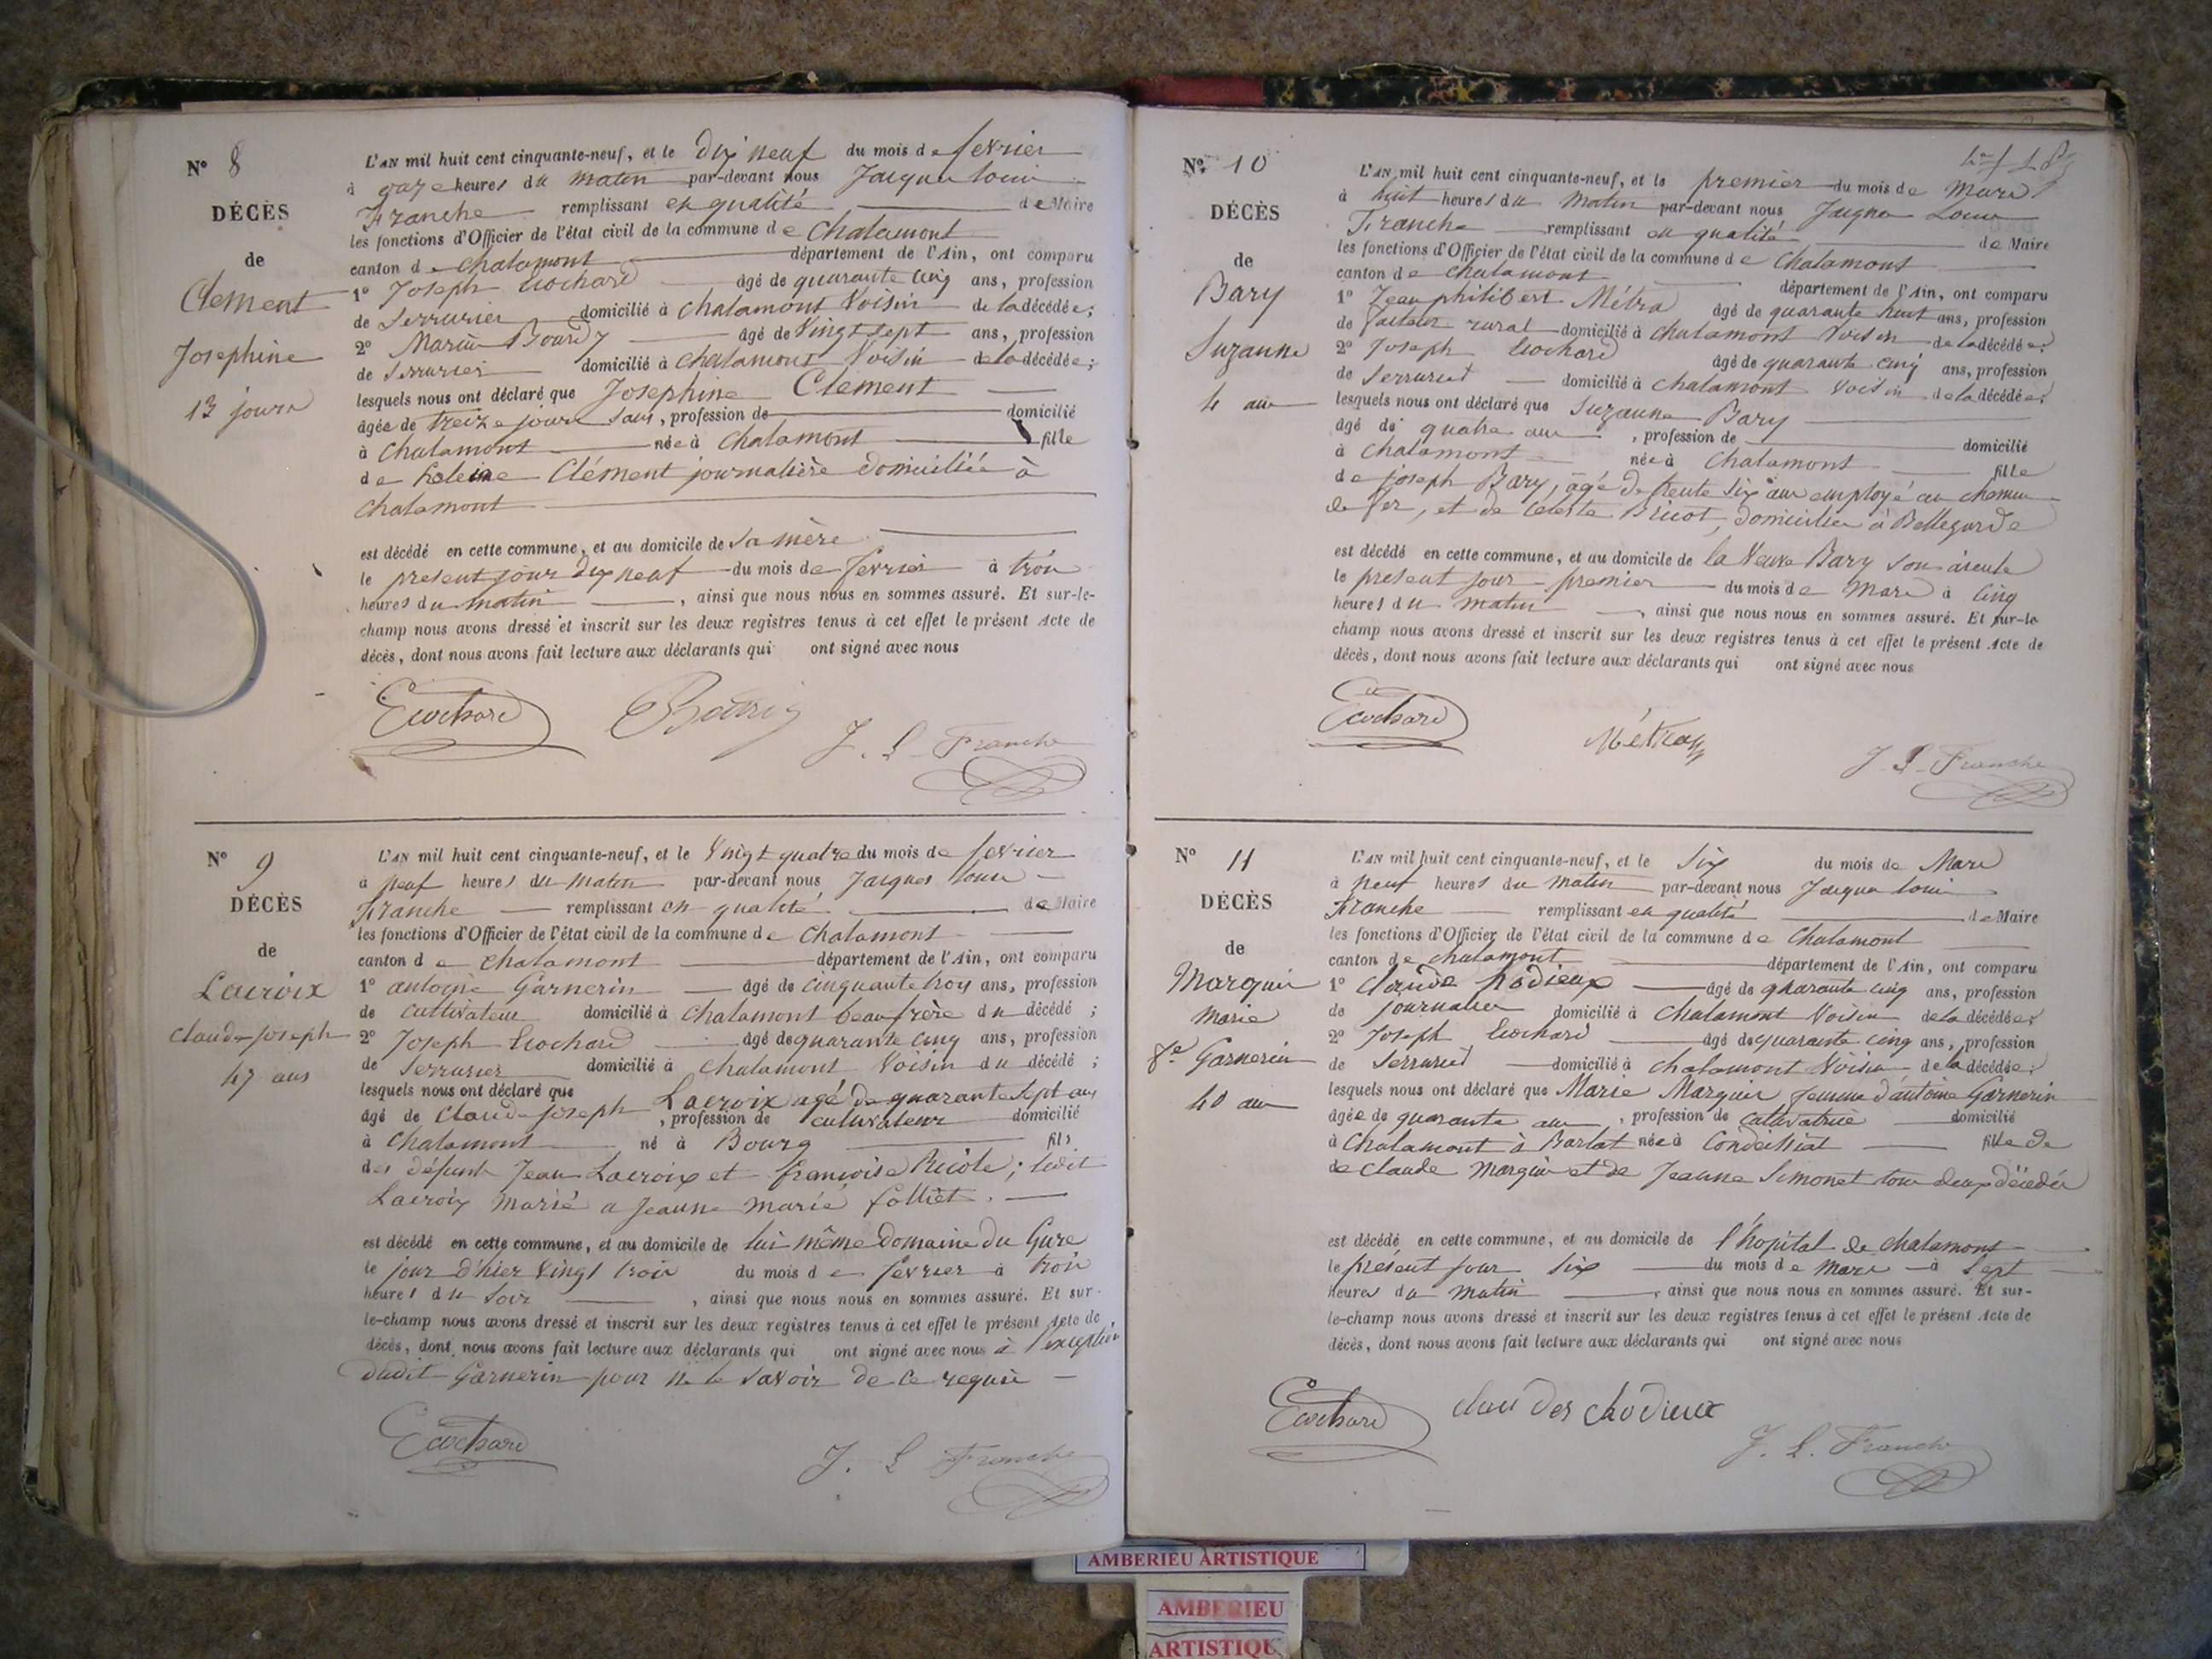 N° 8
DÉCÈS
de
Clement
Josephine
13 jours
L'AN mil huit cent cinquante-neuf, et le dix neuf du mois de fevrier
à onze heures du matin par-devant nous Jacques Louis
Franche remplissant en qualité de Maire
les fonctions d'Officier de l'état civil de la commune de Chalamont
canton de chalamont département de l'Ain, ont comparu
1° Joseph Ecochard âgé de quarante cinq ans, profession
de Serrurier domicilié à chalamont Voisin de la décédée;
2° Marin âgé de Vingt sept ans, profession
de Serrurier domicilié à chalamont Voisin de la décédée;
lesquels nous ont déclaré que Josephine Clement
âgée de treize jours sans, profession de domicilié
à Chalamont née à Chalamont fille
de Clément journalière domiciliée à
Chalamont
est décédé en cette commune, et au domicile de sa mère
le présent jour dix neuf du mois de fevrier à trois
heures du matin , ainsi que nous nous en sommes assuré. Et sur-le-
champ nous avons dressé et inscrit sur les deux registres tenus à cet effet le présent Acte de
décès, dont nous avons fait lecture aux déclarants qui ont signé avec nous
Ecochard J. L. Franche
N° 9
DÉCÈS
de
Lacroix
claude joseph
47 ans
L'AN mil huit cent cinquante-neuf, et le Vingt quatre du mois de fevrier
à neuf heures du matin par-devant nous Jacques Louis
Franche remplissant en qualité de Maire
les fonctions d'Officier de l'état civil de la commune de Chalamont
canton de chalamont département de l'Ain, ont comparu
1° antoine Garnerin âgé de cinquante trois ans, profession
de cultivateur domicilié à Chalamont beau frère du décédé ;
2° Joseph Ecochard âgé de quarante cinq ans, profession
de Serrurier domicilié à Chalamont Voisin du décédé ;
lesquels nous ont déclaré que Lacroix agé de quarante sept ans
âgé de Claude Joseph , profession de cultivateur domicilié
à Chalamont né à Bourg fils
des défunts Jean Lacroix et françoise ; ledit
Lacroix marié a jeanne marie folliet.
est décédé en cette commune, et au domicile de lui même Domaine du
le jour d'hier Vingt trois du mois de fevrier à trois
heures du Soir , ainsi que nous nous en sommes assuré. Et sur-
le-champ nous avons dressé et inscrit sur les deux registres tenus à cet effet le présent Acte de
décès, dont nous avons fait lecture aux déclarants qui ont signé avec nous à l'exception
dudit Garnerin pour ne le savoir de ce requis
Ecochard J. L. Franche
N° 10
DÉCÈS
de
Bary
Suzanne
4 ans
L'AN mil huit cent cinquante-neuf, et le premier du mois de Mars
à huit heures du matin par-devant nous Jacques Louis
Franche remplissant en qualité de Maire
les fonctions d'Officier de l'état civil de la commune de Chalamont
canton de chalamont département de l'Ain, ont comparu
1° Jean philibert Métra âgé de quarante huit ans, profession
de facteur rural domicilié à chalamont Voisin de la décédée;
2° Joseph Ecochard âgé de quarante cinq ans, profession
de Serrurier domicilié à chalamont Voisin de la décédée;
lesquels nous ont déclaré que Suzanne Bary
âgé de quatre ans , profession de domicilié
à Chalamont née à Chalamont fille
de joseph Bary, agé de trente six ans employé au chemin
de fer, et de Céleste Bricot, domiciliés à Bellegarde
est décédé en cette commune, et au domicile de la Veuve Bary son aieule
le present jour premier du mois de Mars à cinq
heures du matin , ainsi que nous nous en sommes assuré. Et sur-le-
champ nous avons dressé et inscrit sur les deux registres tenus à cet effet le présent Acte de
décès, dont nous avons fait lecture aux déclarants qui ont signé avec nous
Ecochard Métra J. L. Franche
N° 11
DÉCÈS
de
Marguin
Marie
fe Garnerin
40 ans
L'AN mil huit cent cinquante-neuf, et le Six du mois de Mars
à neuf heures du matin par-devant nous Jacques Louis
Franche remplissant en qualité de Maire
les fonctions d'Officier de l'état civil de la commune de Chalamont
canton de chalamont département de l'Ain, ont comparu
1° Claude hodieux âgé de quarante cinq ans, profession
de journalier domicilié à Chalamont Voisin de la décédée;
2° Joseph Ecochard âgé de quarante cinq ans, profession
de Serrurier domicilié à chalamont Voisin de la décédée;
lesquels nous ont déclaré que Marie Marguin femme d'antoine Garnerin
âgée de quarante ans , profession de cultivatrice domicilié
à Chalamont à Barlat née à Condeissiat fille de
de Claude Marguin et de Jeanne Simonet tous deux décédés
est décédé en cette commune, et au domicile de l'hopital de chalamont
le présent jour six du mois de mars à sept
heures du matin , ainsi que nous nous en sommes assuré. Et sur-
le-champ nous avons dressé et inscrit sur les deux registres tenus à cet effet le présent Acte de
décès, dont nous avons fait lecture aux déclarants qui ont signé avec nous
Ecochard J. L. Franche
AMBERIEU ARTISTIQUE
AMBERIEU
ARTISTIQUE